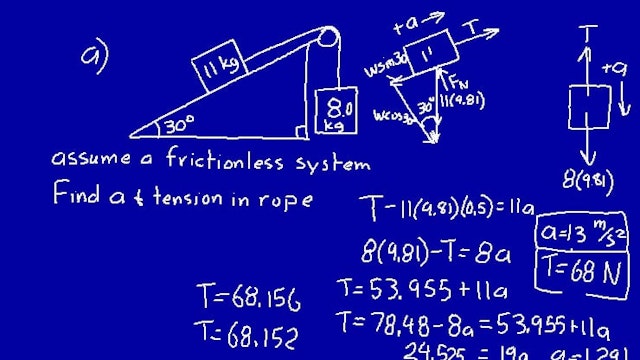 a)
11 kg
30°
8.0
kg
+a
T
11
Wsin30
FN
30°
11(9.81)
Wcos30
T
+a
8(9.81)
assume a frictionless system
Find a & tension in rope
T-11(9.81)(0.5)=11a
8(9.81)-T=8a
T=53.955+11a
T=78.48-8a=53.955+11a
24.525=19a a=1.291
a=1.3 m/s²
T=68 N
T=68.156
T=68.152